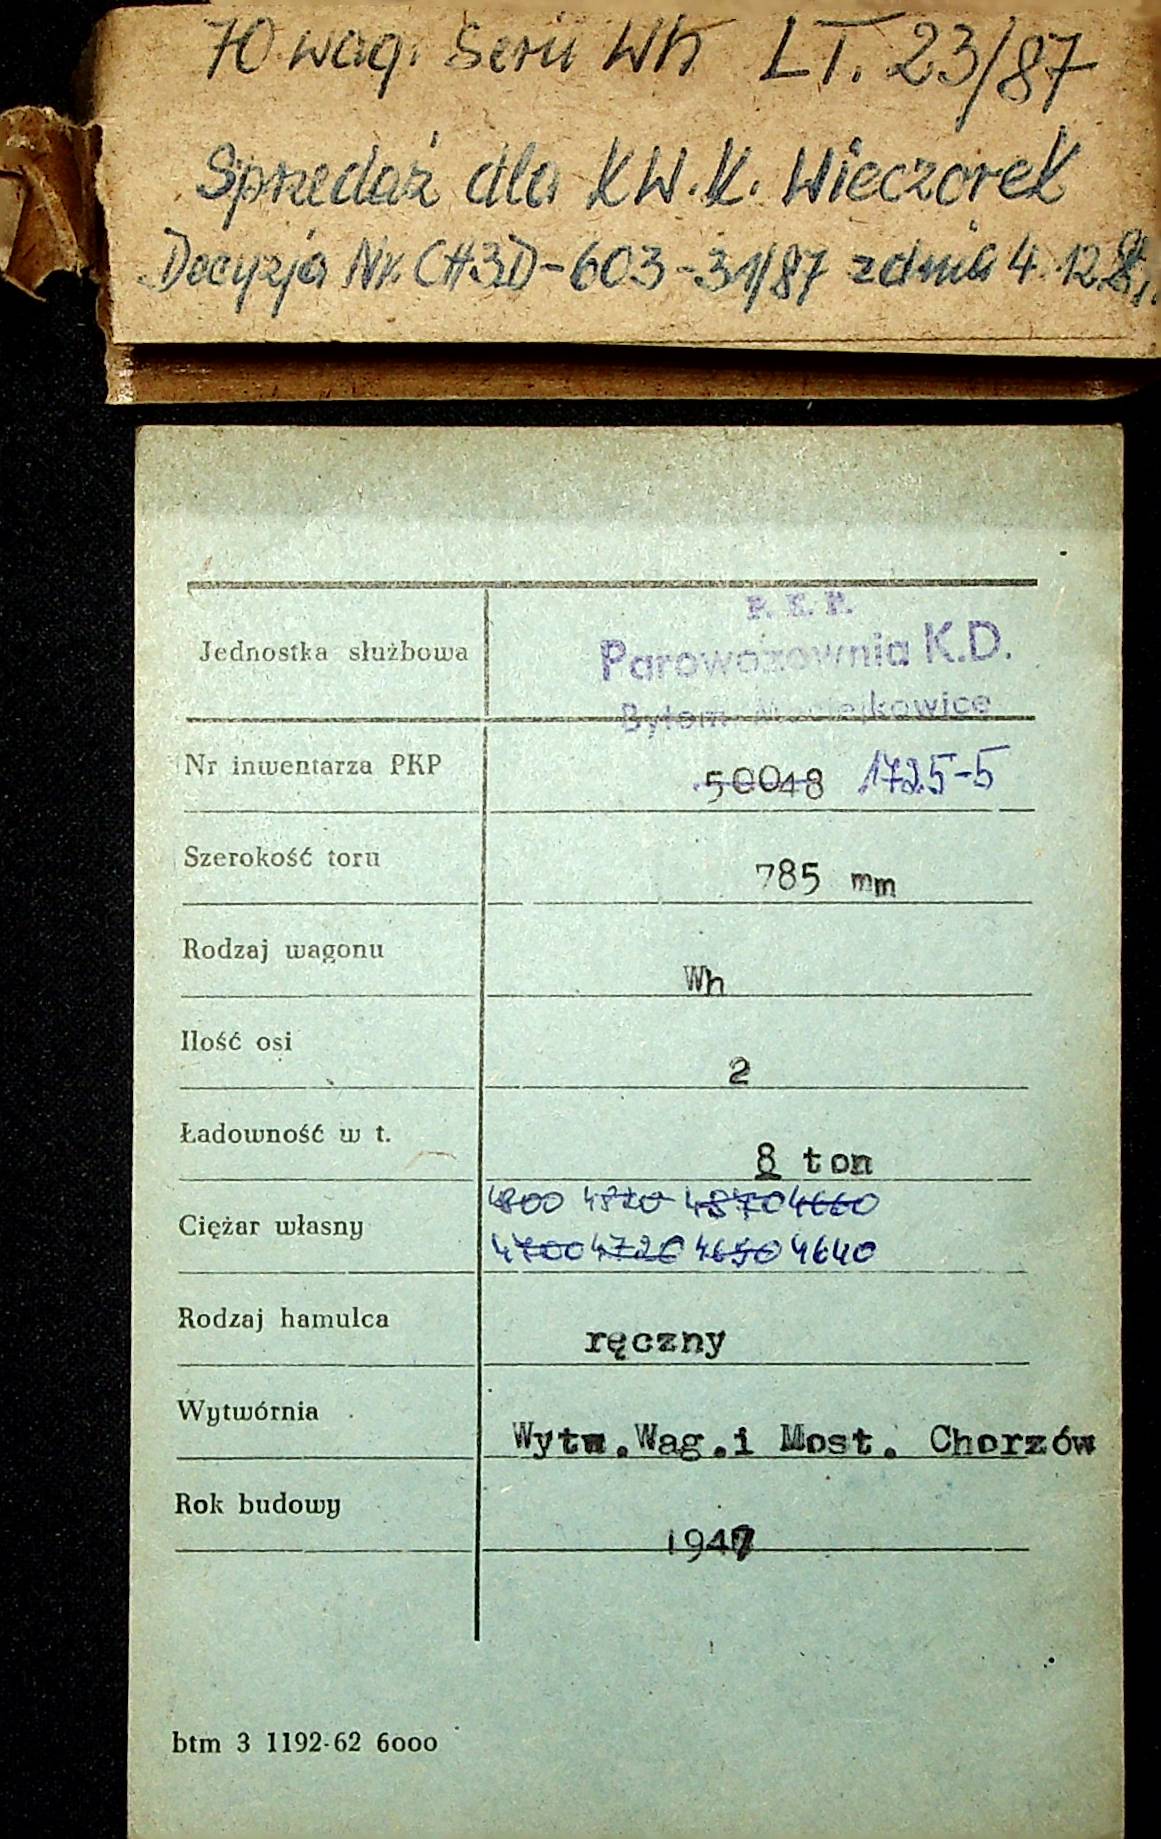 70 wag. Serii Wh LT. 23/87
Sprzedaż dla KW.K. Wieczorek
Decyzja Nr. CH3D-603-31/87 z dnia 4.12.87
Jednostka służbowa
P. K. P.
Parowozownia K.D.
Bytom-Maciejkowice
Nr inwentarza PKP 50048 1725-5
Szerokość toru 785 mm
Rodzaj wagonu Wh
Ilość osi 2
Ładowność w t. 8 ton
Ciężar własny
4800 4820 4870 4660
4700 4720 4650 4640
Rodzaj hamulca ręczny
Wytwórnia Wytw.Wag.i Most. Chorzów
Rok budowy 1947
btm 3 1192-62 6000